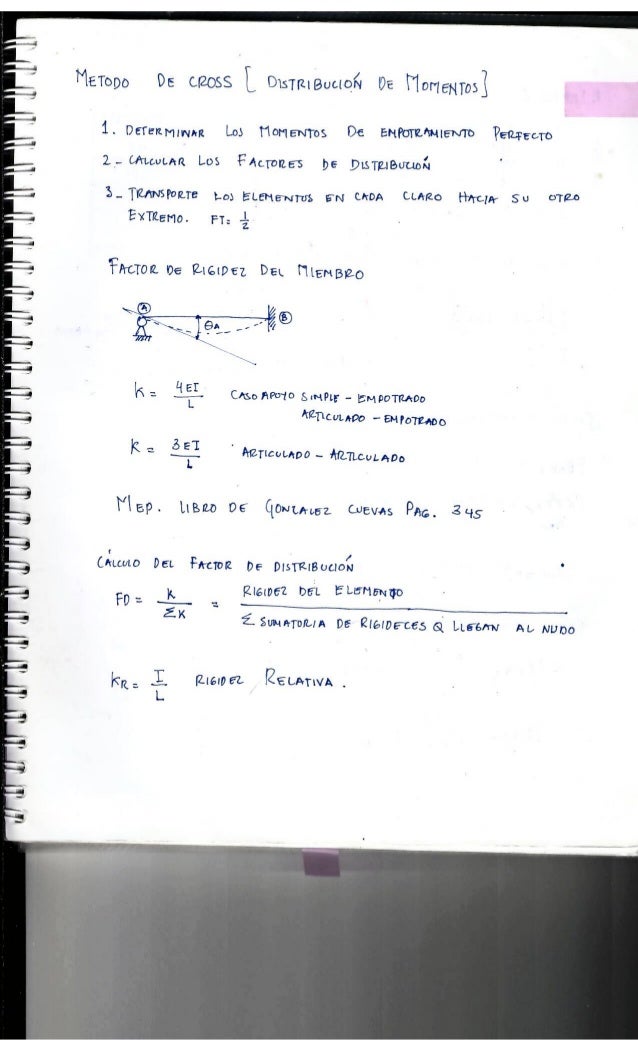 METODO DE CROSS [ DISTRIBUCIÓN DE MOMENTOS]
1. DETERMINAR LOS MOMENTOS DE EMPOTRAMIENTO PERFECTO
2- CALCULAR LOS FACTORES DE DISTRIBUCIÓN
3- TRANSPORTE LOS ELEMENTOS EN CADA CLARO HACIA SU OTRO
EXTREMO. FT= 1/2
FACTOR DE RIGIDEZ DEL MIEMBRO
A
θA
B
K = 4EI/L CASO APOYO SIMPLE - EMPOTRADO
ARTICULADO - EMPOTRADO
K = 3EI/L ARTICULADO - ARTICULADO
MEP. LIBRO DE GONZALEZ CUEVAS PAG. 345
CÁLCULO DEL FACTOR DE DISTRIBUCIÓN
FD = K/ΣK = RIGIDEZ DEL ELEMENTO / Σ SUMATORIA DE RIGIDECES Q LLEGAN AL NUDO
KR = I/L RIGIDEZ RELATIVA.